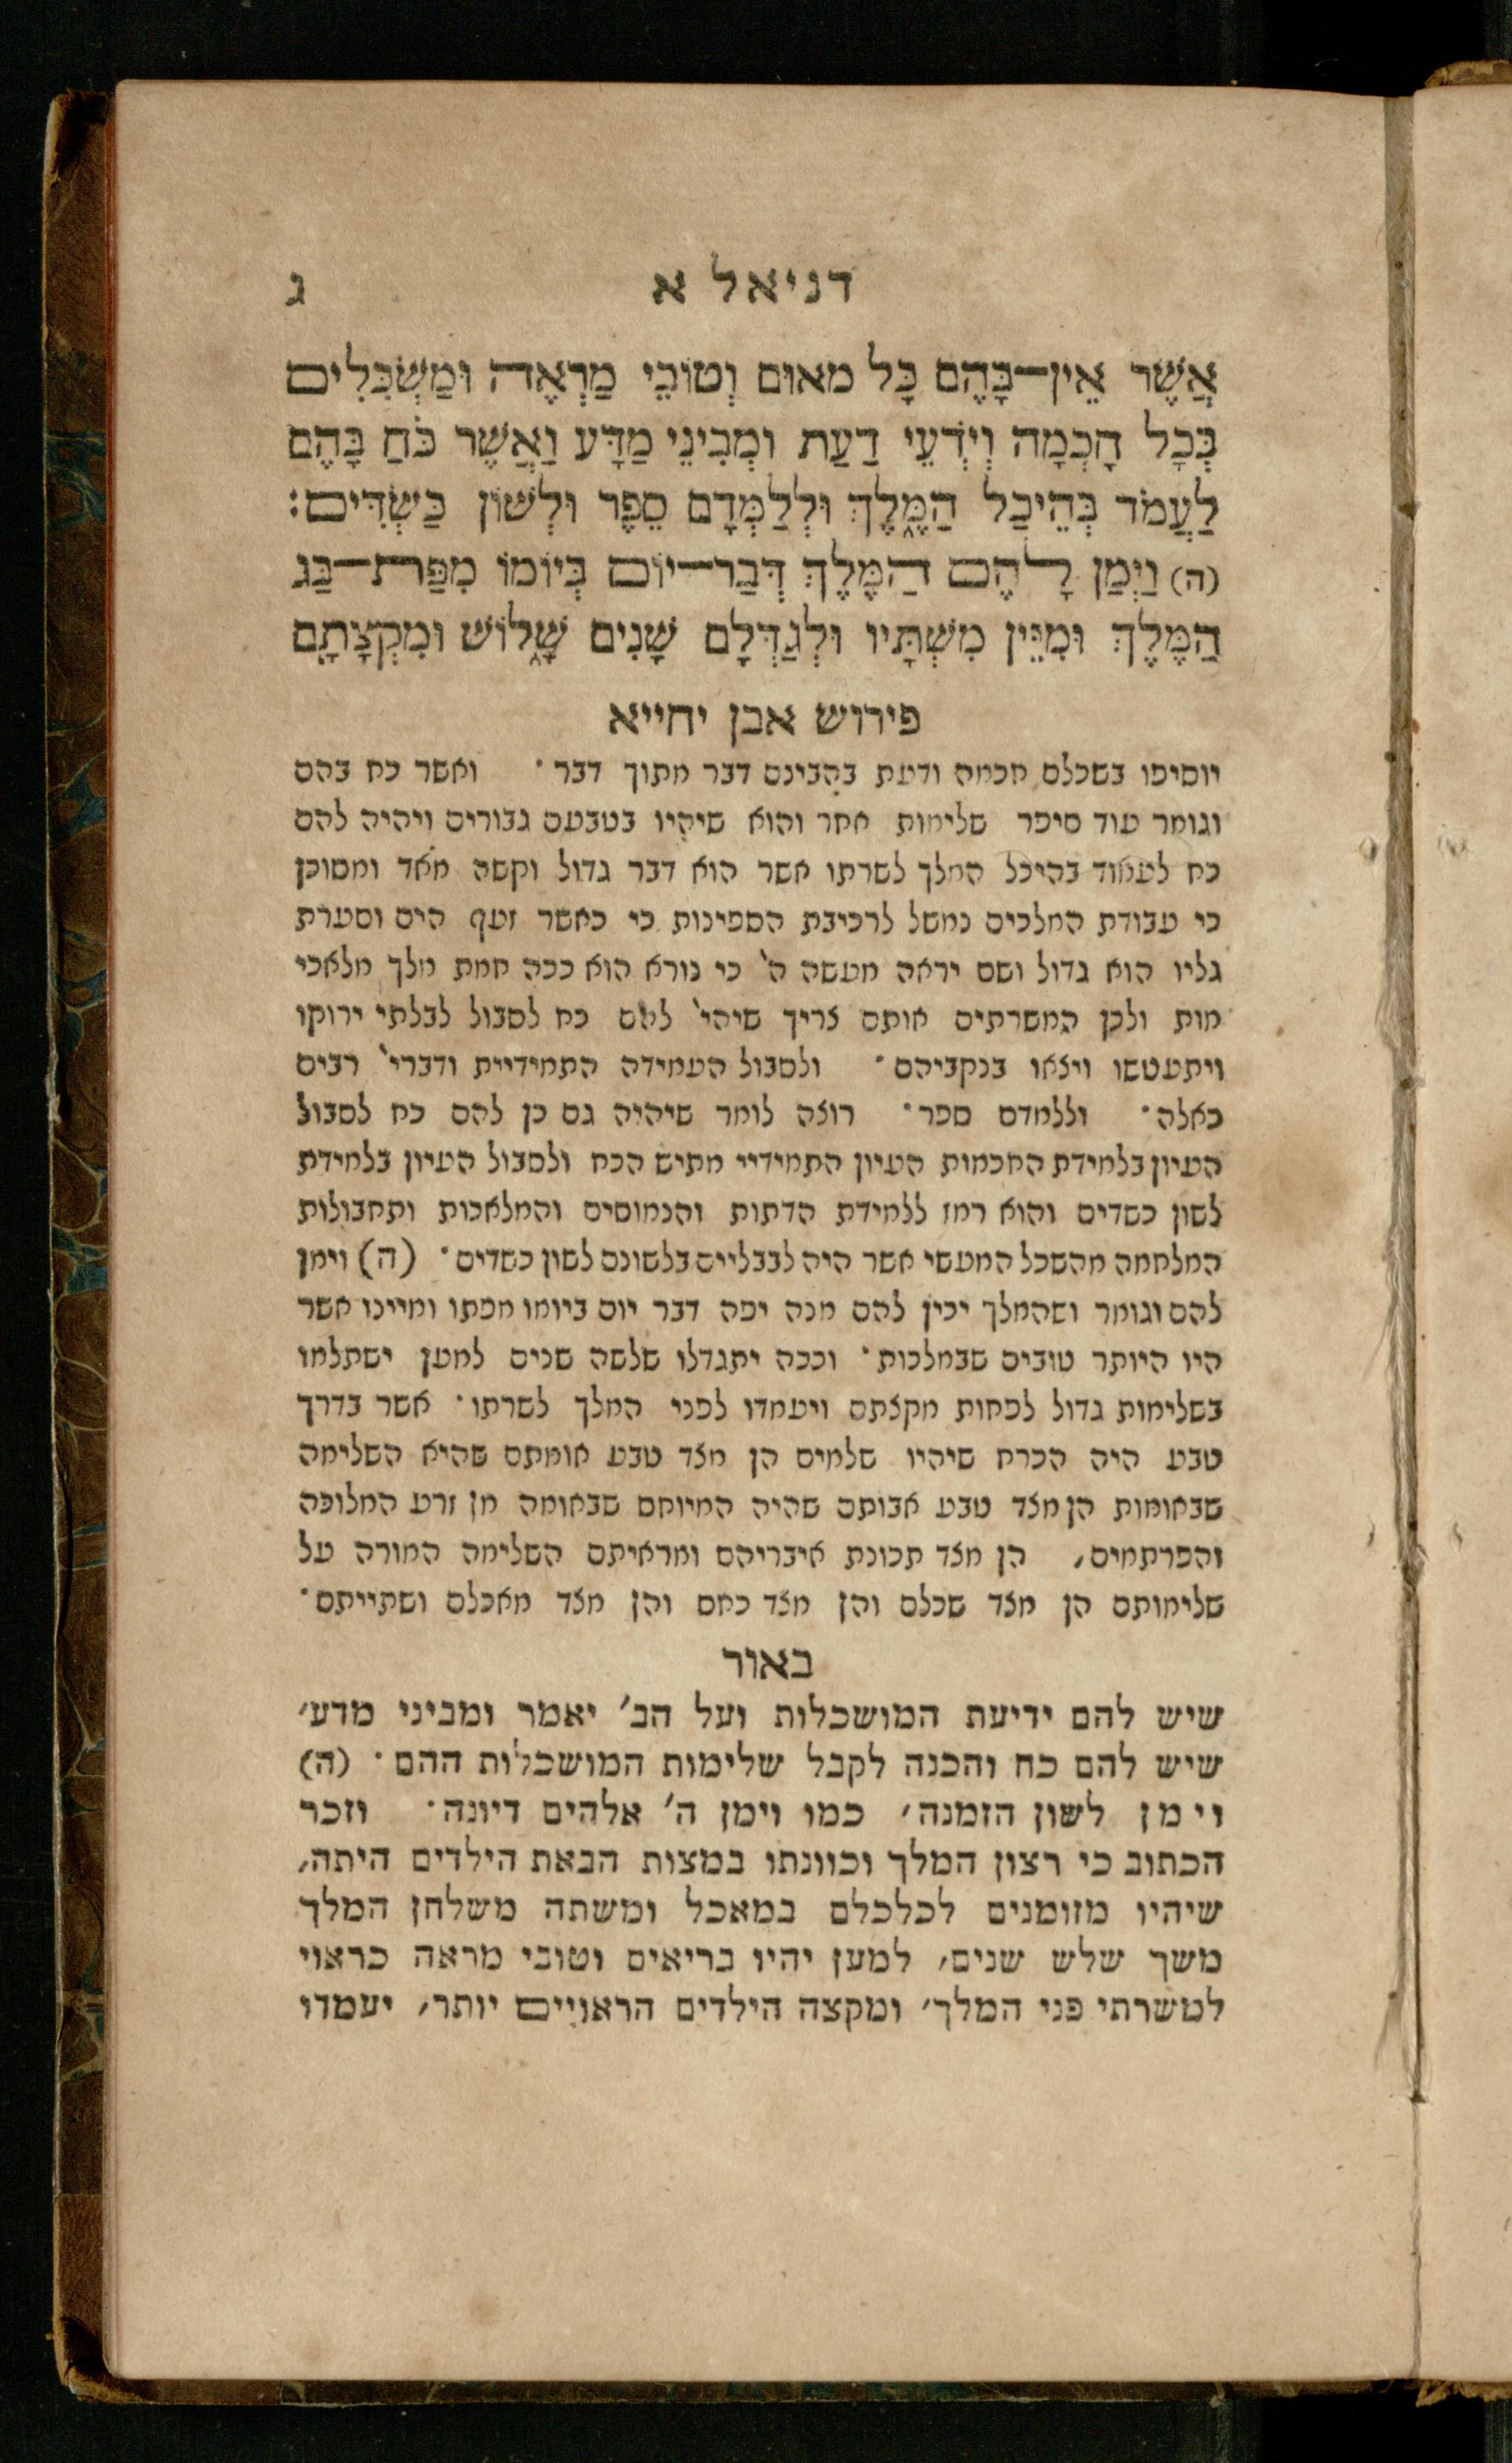 דניאל א ג
אֲשֶׁר אֵין־בָּהֶם כָּל מאוּם וְטוֹבֵי מַרְאֶה וּמַשְׂכִּלִים
בְּכָל חָכְמָה וְיֹדְעֵי דַעַת וּמְבִינֵי מַדָּע וַאֲשֶׁר כֹּחַ בָּהֶם
לַעֲמֹד בְּהֵיכַל הַמֶּ֑לֶךְ וּלְלַמְּדָם סֵפֶר וּלְשׁוֹן כַּשְׂדִּים׃
(ה) וַיְמַן לָהֶם הַמֶּלֶךְ דְּבַר־יוֹם בְּיוֹמוֹ מִפַּת־בַּג
הַמֶּלֶךְ וּמִיֵּין מִשְׁתָּיו וּלְגַדְּלָם שָׁנִים שָׁל֑וֹשׁ וּמִקְצָתָם
פירוש אבן יחייא
יוסיפו בשכלם חכמה ודעת בהבינם דבר מתוך דבר· ואשר כח בהם
וגומר עוד סיפר שלימות אחר והוא שיהיו בטבעם גבורים ויהיה להם
כח לעמוד בהיכל המלך לשרתו אשר הוא דבר גדול וקשה מאד ומסוכן
כי עבודת המלכים נמשל לרכיבת הספינות כי כאשר זעף הים וסערת
גליו הוא גדול ושם יראה מעשה ה' כי נורא הוא ככה חמת מלך מלאכי
מות ולכן המשרתים אותם צריך שיהי' להם כח לסבול לבלתי ירוקו
ויתעטשו ויצאו בנקביהם· ולסבול העמידה התמידיית ודברי' רבים
כאלה· וללמדם ספר· רוצה לומר שיהיה גם כן להם כח לסבול
העיון בלמידת החכמות העיון התמידיי מתיש הכח ולסבול העיון בלמידת
לשון כשדים והוא רמז ללמידת הדתות והנמוסים והמלאכות ותחבולות
המלחמה מהשכל המעשי אשר היה לבבליים בלשונם לשון כשדים· (ה) וימן
להם וגומר ושהמלך יכין להם מנה יפה דבר יום ביומו מפתו ומיינו אשר
היו היותר טובים שבמלכות· וככה יתגדלו שלשה שנים למען ישתלמו
בשלימות גדול לפחות מקצתם ויעמדו לפני המלך לשרתו· אשר בדרך
טבע היה הכרח שיהיו שלמים הן מצד טבע אומתם שהיא השלימה
שבאומות הן מצד טבע אבותם שהיה המיוחס שבאומה מן זרע המלוכה
והפרתמים, הן מצד תכונת איבריהם ומראיתם השלימה המורה על
שלימותם הן מצד שכלם והן מצד כחם והן מצד מאכלם ושתייתם·
באור
שיש להם ידיעת המושכלות ועל הב' יאמר ומביני מדע,
שיש להם כח והכנה לקבל שלימות המושכלות ההם· (ה)
וימן לשון הזמנה, כמו וימן ה' אלהים דיונה· וזכר
הכתוב כי רצון המלך וכוונתו במצות הבאת הילדים היתה,
שיהיו מזומנים לכלכלם במאכל ומשתה משלחן המלך
משך שלש שנים, למען יהיו בריאים וטובי מראה כראוי
למשרתי פני המלך, ומקצה הילדים הראויים יותר, יעמדו